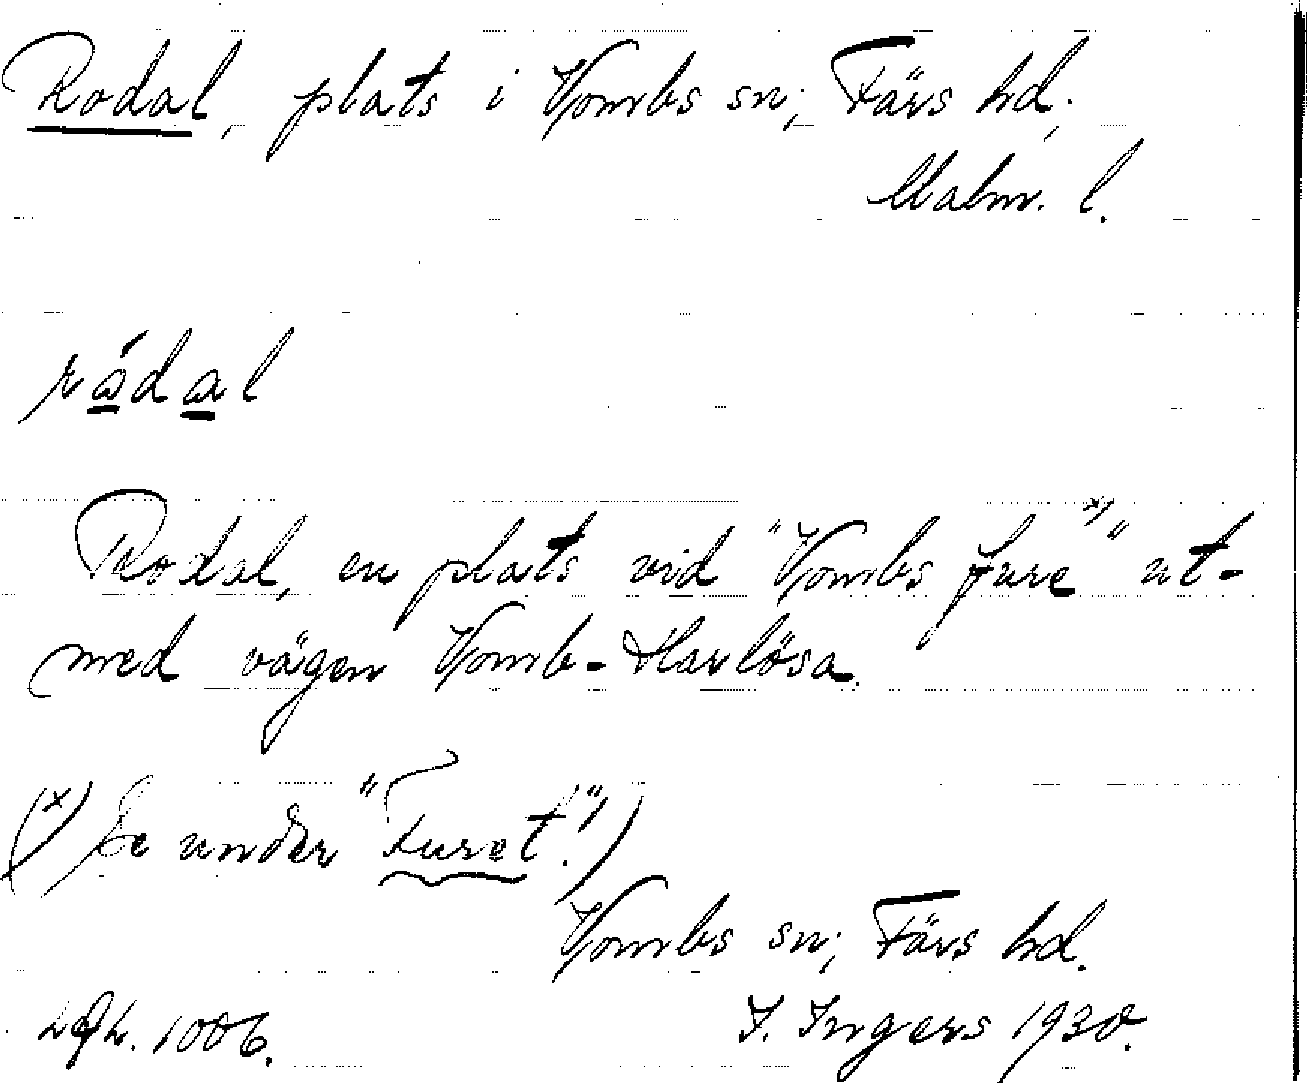 Rodal, plats i Vombs sn; Färs hd,
Malm. l.
rådal
Rodal, en plats vid "Vombs fure x)" ut-
med vägen Vomb-Harlösa.
(x) Se under "Furet".)
Vombs sn; Färs hd.
1006.
I. Ingers 1930.